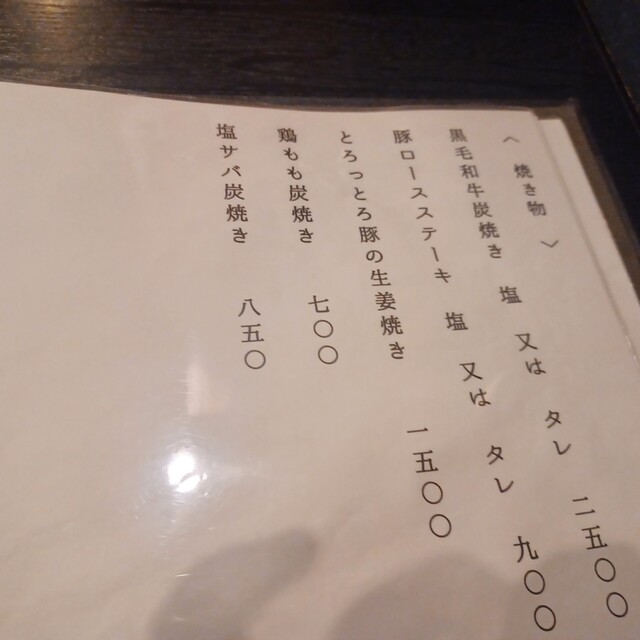 〈焼き物〉
黒毛和牛炭焼き 塩 又は タレ 二五〇〇
豚ロースステーキ 塩 又は タレ 九〇〇
とろっとろ豚の生姜焼き 一五〇〇
鶏もも炭焼き 七〇〇
塩サバ炭焼き 八五〇